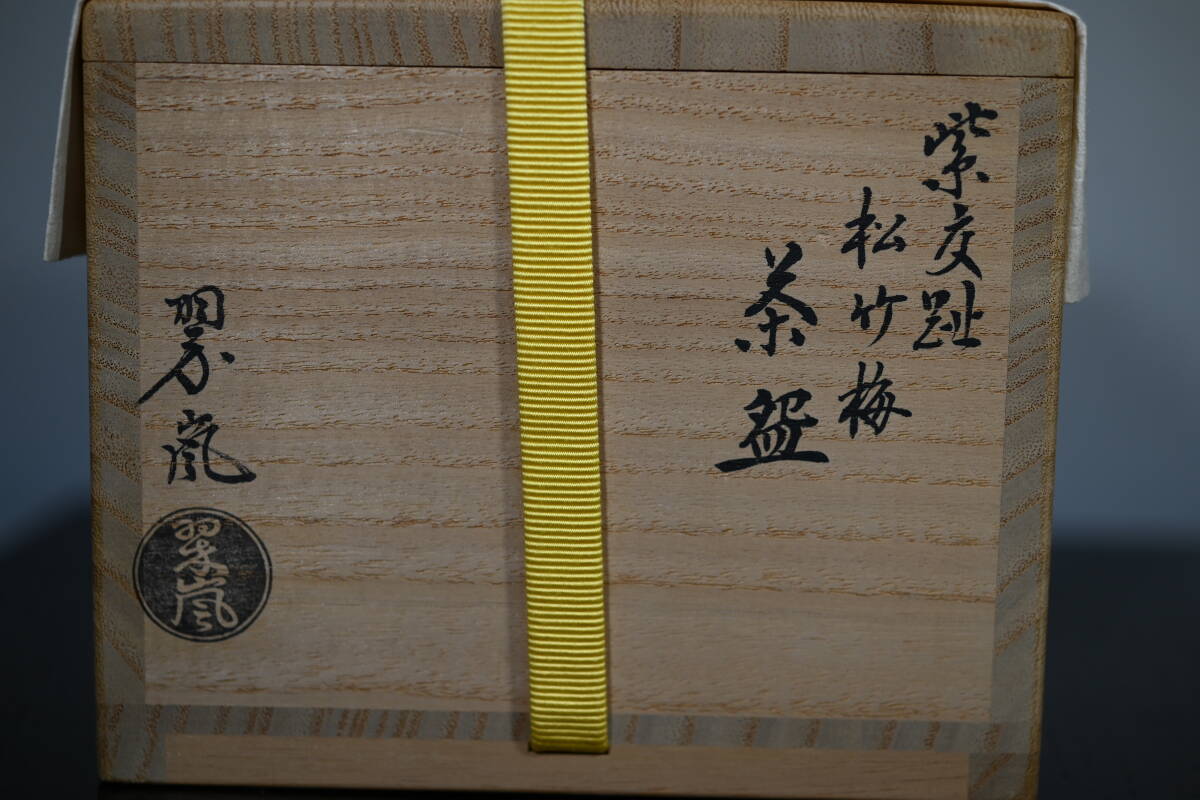 紫交趾
松竹梅
茶盌
翠嵐
翠嵐